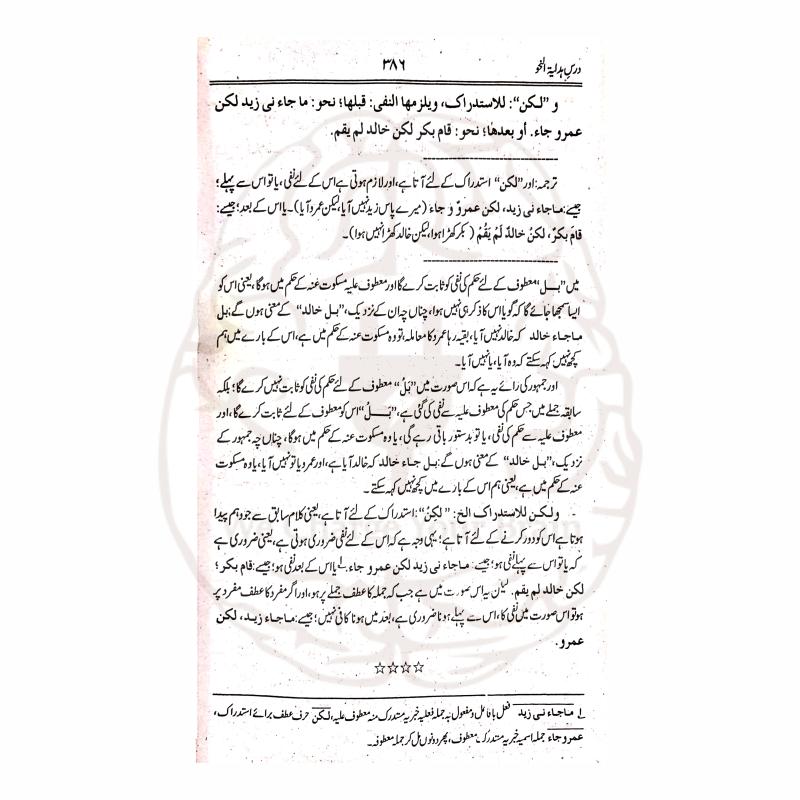 درسِ ہدایۃ النحو ۳۸۶
و ”لكن“: للاستدراك، ويلزمها النفى: قبلها؛ نحو: ما جاء نى زيد لكن
عمرو جاء. أو بعدها؛ نحو: قام بكر لكن خالد لم يقم.
ترجمہ: اور ”لكن“ استدراک کے لئے آتا ہے، اور لازم ہوتی ہے اس کے لئے نفی، یا تو اس سے پہلے؛
جیسے: ماجاء نى زيد، لكن عمروٌ وجاءَ (میرے پاس زید نہیں آیا، لیکن عمرو آیا)۔ یا اس کے بعد؛ جیسے:
قامَ بكرٌ، لكنْ خالدٌ لَمْ يَقُمْ (بکر کھڑا ہوا، لیکن خالد کھڑا نہیں ہوا)۔
میں ”بل“ معطوف کے لئے حکم کی نفی کو ثابت کرے گا اور معطوف علیہ مسکوت عنہ کے حکم میں ہوگا، یعنی اس کو
ایسا سمجھا جائے گا کہ گویا اس کا ذکر ہی نہیں ہوا، چناں چہ ان کے نزدیک، ”بل خالد“ کے معنی ہوں گے: بل
ماجاء خالد کہ خالد نہیں آیا، بقیہ رہا عمرو کا معاملہ، تو وہ مسکوت عنہ کے حکم میں ہے، اس کے بارے میں ہم
کچھ نہیں کہہ سکتے کہ وہ آیا، یا نہیں آیا۔
اور جمہور کی رائے یہ ہے کہ اس صورت میں ”بَلْ“ معطوف کے لئے حکم کی نفی کو ثابت نہیں کرے گا؛ بلکہ
سابقہ جملے میں جس حکم کی معطوف علیہ سے نفی کی گئی ہے، ”بَلْ“ اس کو معطوف کے لئے ثابت کرے گا، اور
معطوف علیہ سے حکم کی نفی، یا تو بدستور باقی رہے گی، یا وہ مسکوت عنہ کے حکم میں ہوگا، چناں چہ جمہور کے
نزدیک، ”بل خالد“ کے معنی ہوں گے: بل جاء خالد کہ خالد آیا ہے، اور عمرو یا تو نہیں آیا، یا وہ مسکوت
عنہ کے حکم میں ہے، یعنی ہم اس کے بارے میں کچھ نہیں کہہ سکتے۔
ولكن للاستدراك الخ: ”لكِنْ“: استدراک کے لئے آتا ہے، یعنی کلام سابق سے جو وہم پیدا
ہوتا ہے اس کو دور کرنے کے لئے آتا ہے؛ یہی وجہ ہے کہ اس کے لئے نفی ضروری ہوتی ہے، یعنی ضروری ہے
کہ یا تو اس سے پہلے نفی ہو؛ جیسے: ماجاء نى زيد لكن عمرو جاء۔ یا اس کے بعد نفی ہو؛ جیسے: قام بكر؛
لكن خالد لم يقم. لیکن یہ اس صورت میں ہے جب کہ جملہ کا عطف جملے پر ہو، اور اگر مفرد کا عطف مفرد پر
ہو تو اس صورت میں نفی کا، اس سے پہلے ہونا ضروری ہے، بعد میں ہونا کافی نہیں؛ جیسے: ماجاء زيد، لكن
عمرو.
☆☆☆☆
لے ماجاء نى زيد فعل با فاعل و مفعول بہ جملہ فعلیہ خبریہ مستدرک منہ معطوف علیہ، لكن حرف عطف برائے استدراک،
عمرو جاء جملہ اسمیہ خبریہ مستدرک معطوف، پھر دونوں مل کر جملہ معطوفہ۔